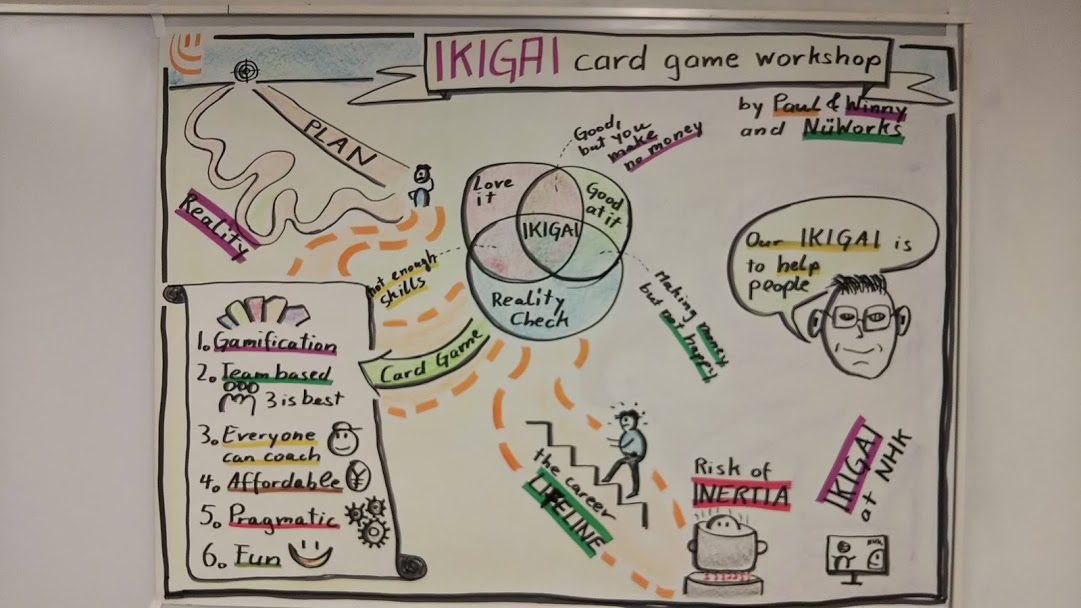 IKIGAI card game workshop
by Paul & Winny
and NüWorks
PLAN
Reality
Good,
but you
make
no money
Love
it
Good
at it
IKIGAI
Reality
Check
not enough
skills
Making money
but not happy
Our IKIGAI is
to help
people
Card Game
1. Gamification
2. Team based
3 is best
3. Everyone
can coach
4. Affordable
¥
5. Pragmatic
6. Fun
the career
LIFELINE
Risk of
INERTIA
IKIGAI
at NHK
NHK